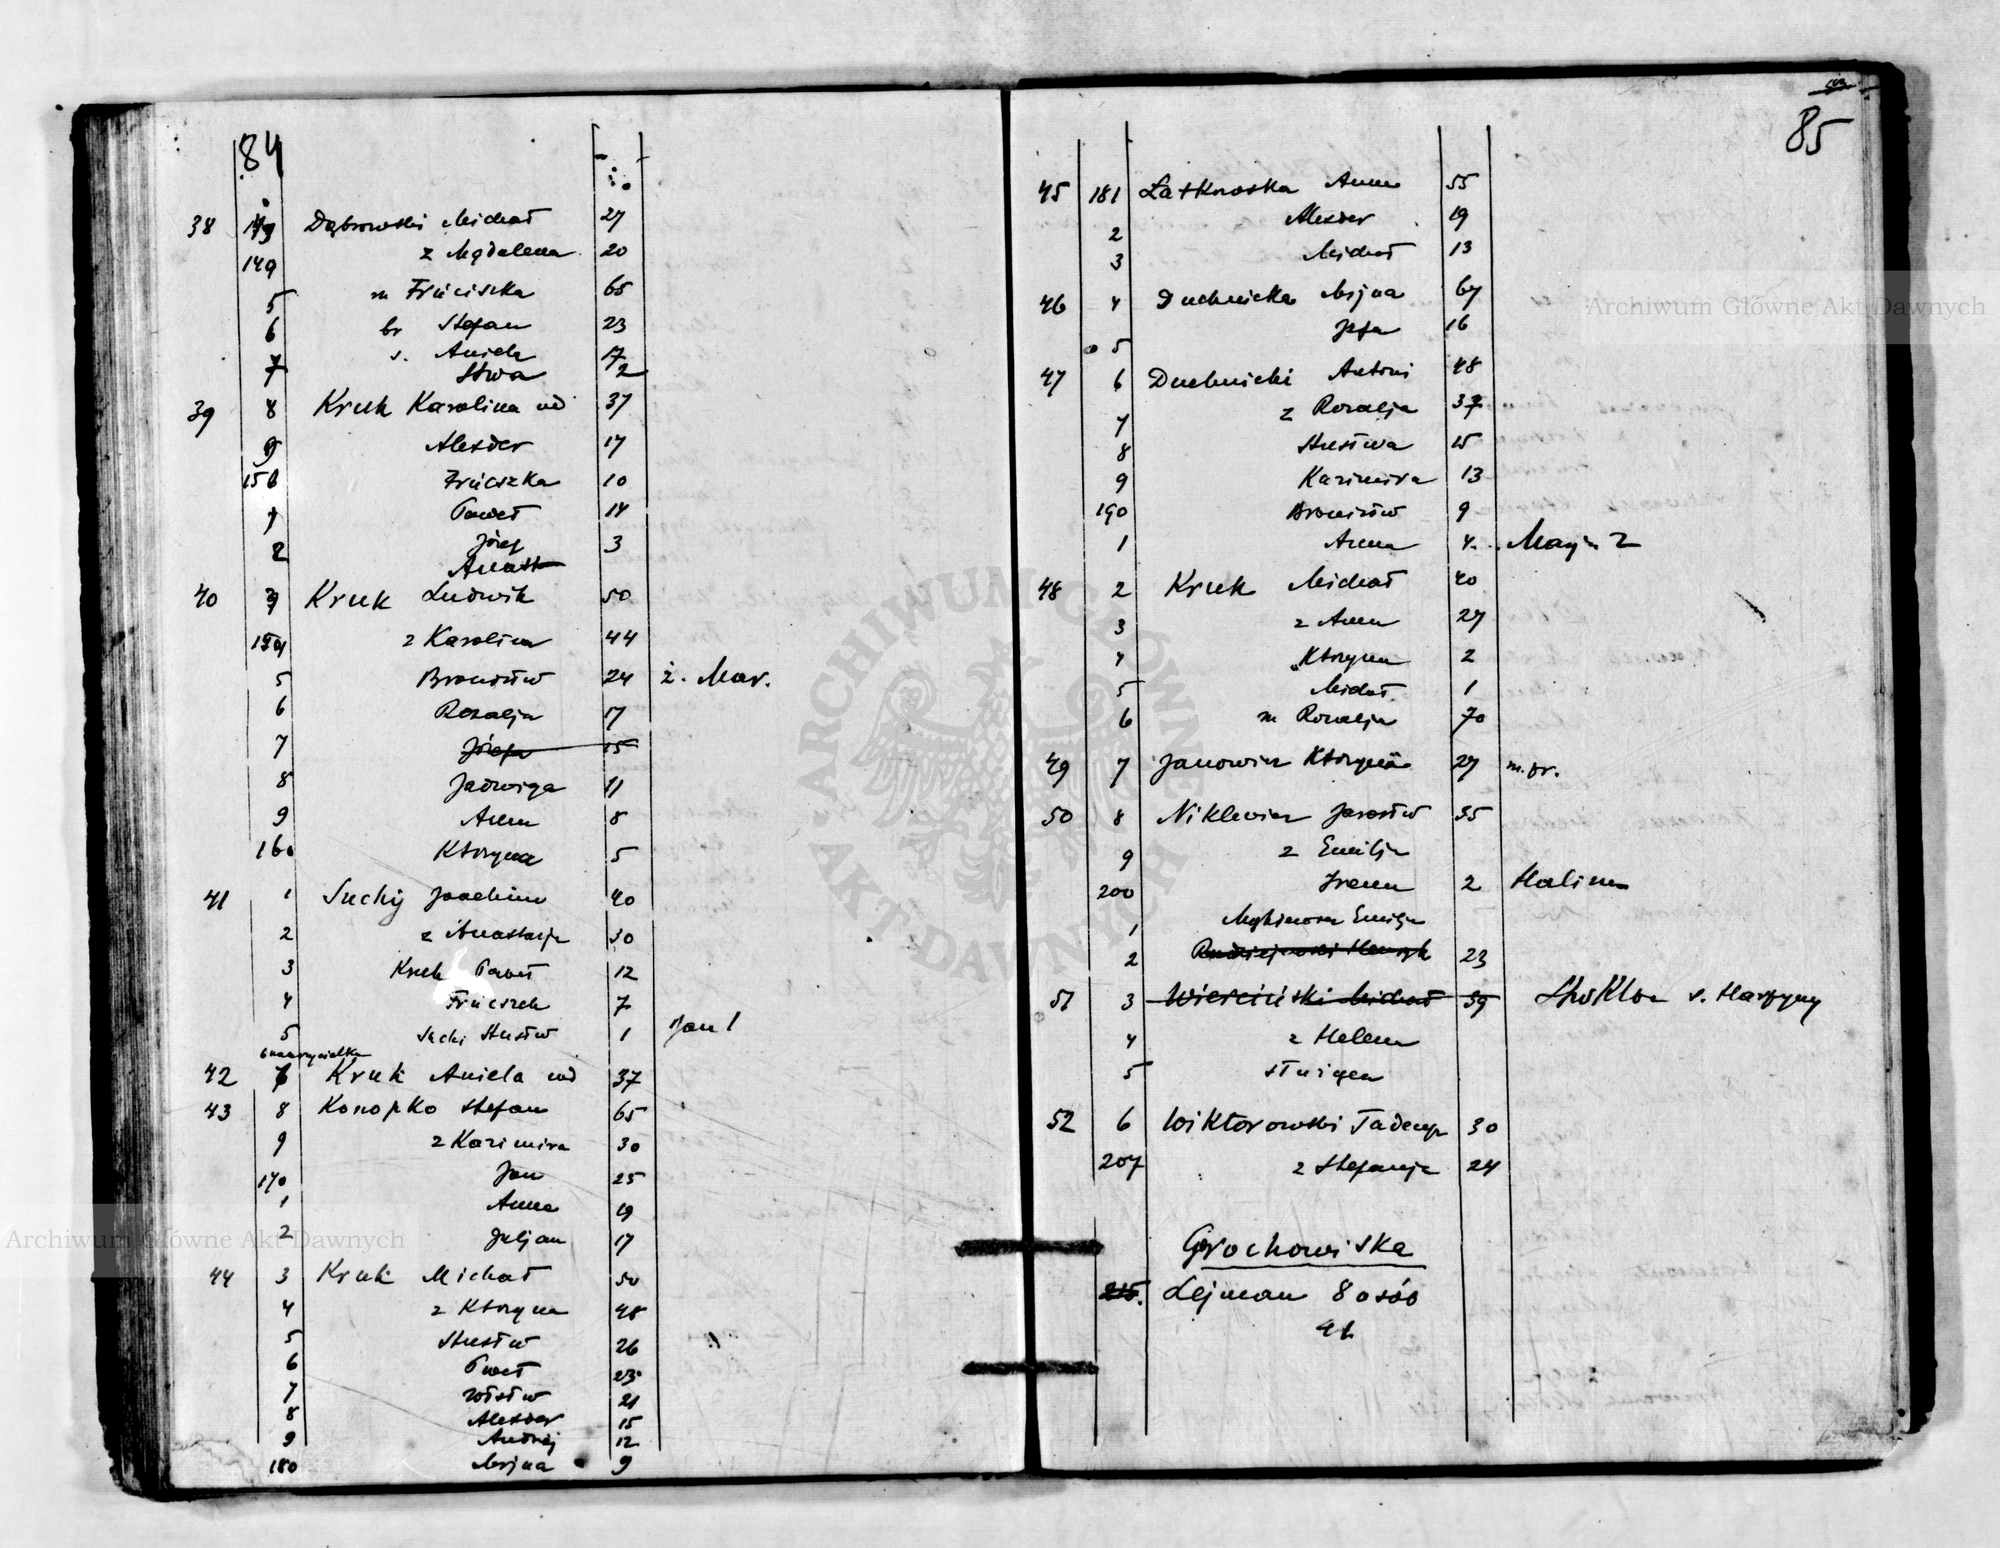 84
38 149 Dąbrowski Michał 27
149 z Mgdalena 20
5 m Frńciszka 65
6 br Stefan 23
7 s. Aniela 17
Stwa 2
39 8 Kruk Karolina wd 37
9 Aleksder 17
150 Frńcszka 10
1 Paweł 14
2 Józef 3
Anast
40 3 Kruk Ludwik 50
154 z Karolina 44
5 Bronisłw 24 ż. Mar.
6 Rozalja 17
7 Józefa 15
8 Jadwiga 11
9 Anna 8
160 Ktrzyna 5
41 1 Suchy Joachim 40
2 z Anastazja 30
3 Kruk Paweł 12
4 Frńcszek 7
5 Suchi Stnisłw 1 Jan 1
6 nauczycielka
42 7 Kruk Aniela wd 37
43 8 Konopko Stefan 65
9 z Kazimira 30
170 Jan 25
1 Anna 19
2 Juljan 17
44 3 Kruk Michał 50
4 z Ktrzyna 48
5 Stnisłw 26
6 Paweł 23
7 21
8 Aleksder 15
9 Andrzej 12
180 Mrjna 9
85
45 181 Latkowska Anna 55
2 Aleksder 19
3 Michał 13
46 4 Duchnicka Mrjna 67
5 Jzfa 16
47 6 Duchnicki Antoni 48
7 z Rozalja 37
8 Stnisłwa 15
9 Kazimira 13
190 Bronisłw 9
1 Anna 4. Maryja 2
48 2 Kruk Michał 40
3 z Anna 27
4 Ktrzyna 2
5 Michał 1
6 m Rozalja 70
49 7 Janowicz Ktrzyna 27 m. dr.
50 8 Niklewicz Jarosłw 35
9 z Emilja
200 Irena 2 Halina
1 Emilja
2 Henryk 23
51 3 Wierciński Michał 59
4 z Helena
5
52 6 Wiktorowski Tadeusz 30
207 z Stefanja 24
Grochowiska
215. Lejman 8 osób
Archiwum Główne Akt Dawnych
Archiwum Główne Akt Dawnych
ARCHIWUM GŁÓWNE
AKT DAWNYCH